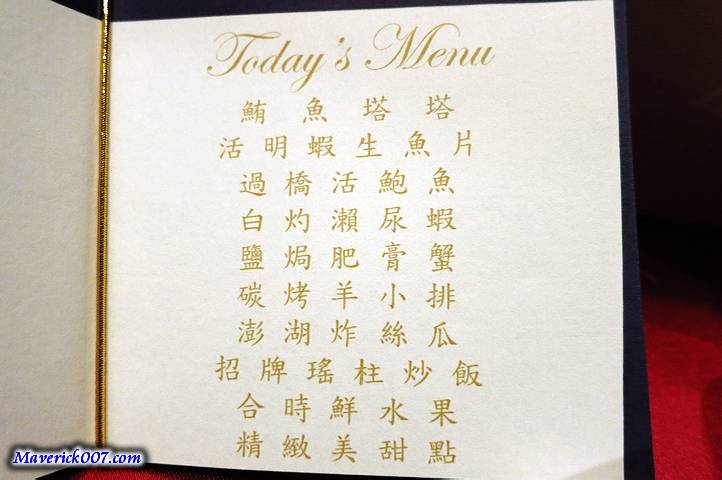 Today's Menu
鮪魚塔塔
活明蝦生魚片
過橋活鮑魚
白灼瀨尿蝦
鹽焗肥膏蟹
碳烤羊小排
澎湖炸絲瓜
招牌瑤柱炒飯
合時鮮水果
精緻美甜點
Maverick007.com